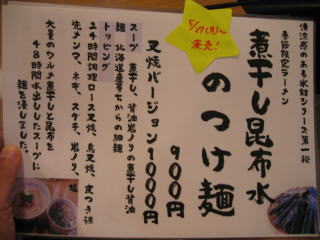 清涼感のある氷结シリーズ第一段
季節限定ラーメン
煮干し昆布水
のつけ麺
5/27(月)〜
発売!
900円
叉焼バージョン1000円
スープ 煮干し、背油岩ノリの煮干し背油
麺 北海道産春七からの細麺
トッピング
24時間調理ロース叉焼、鳥叉焼、皮つき穂
先メンマ、ネギ、スダチ、岩ノリ、塩
大量のウルメ煮干しと昆布を
48時間水出ししたスープに
麺を浸しました。